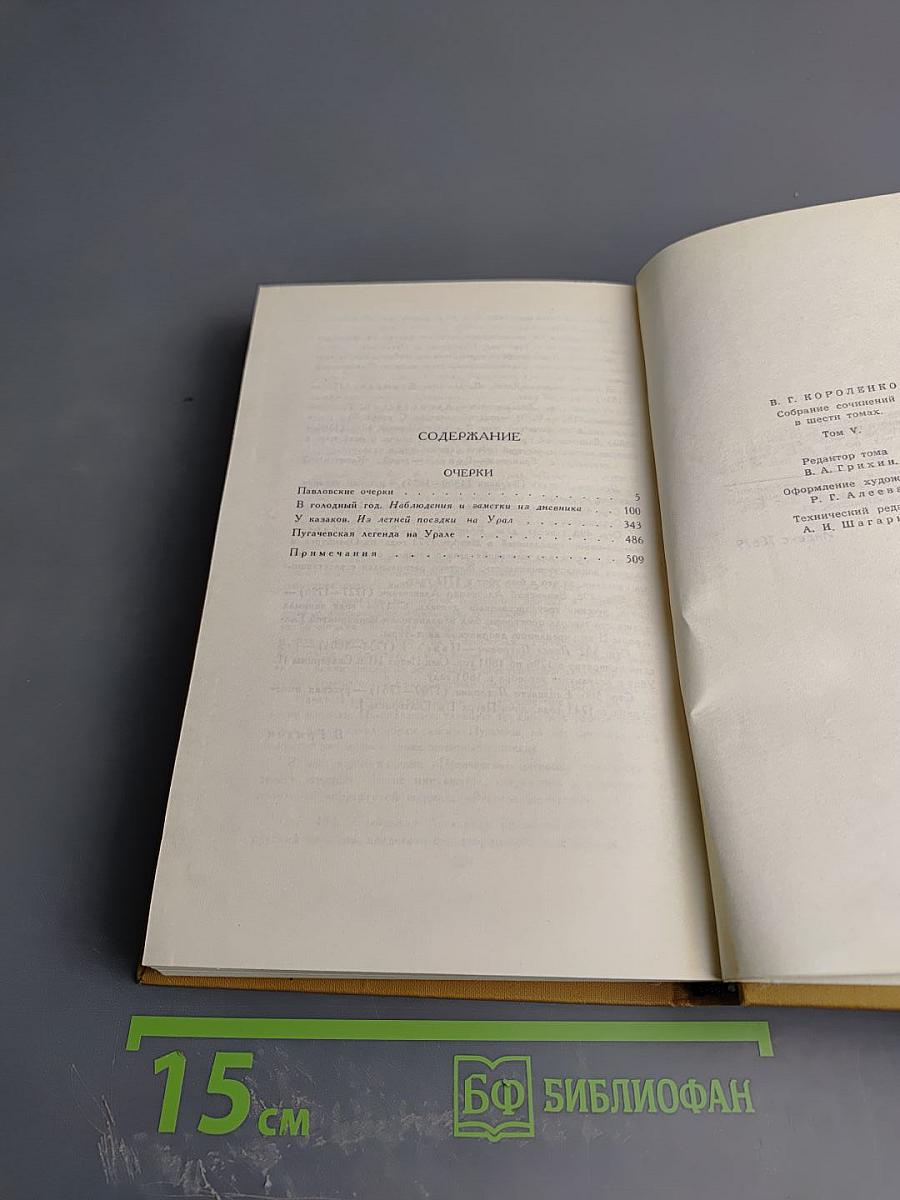 СОДЕРЖАНИЕ
ОЧЕРКИ
Павловские очерки . . . . . . . . . . . . . . . . 5
В голодный год. Наблюдения и заметки из дневника . . . 100
У казаков. Из летней поездки на Урал . . . . . . . . 343
Пугачевская легенда на Урале . . . . . . . . . . . . 486
Примечания . . . . . . . . . . . . . . . . 509
В. Г. КОРОЛЕНКО
Собрание сочинений
в шести томах.
Том V.
Редактор тома
В. А. Грихин.
Оформление худож
Р. Г. Алеева
Технический реда
А. И. Шагари
15 см
БФ БИБЛИОФАН